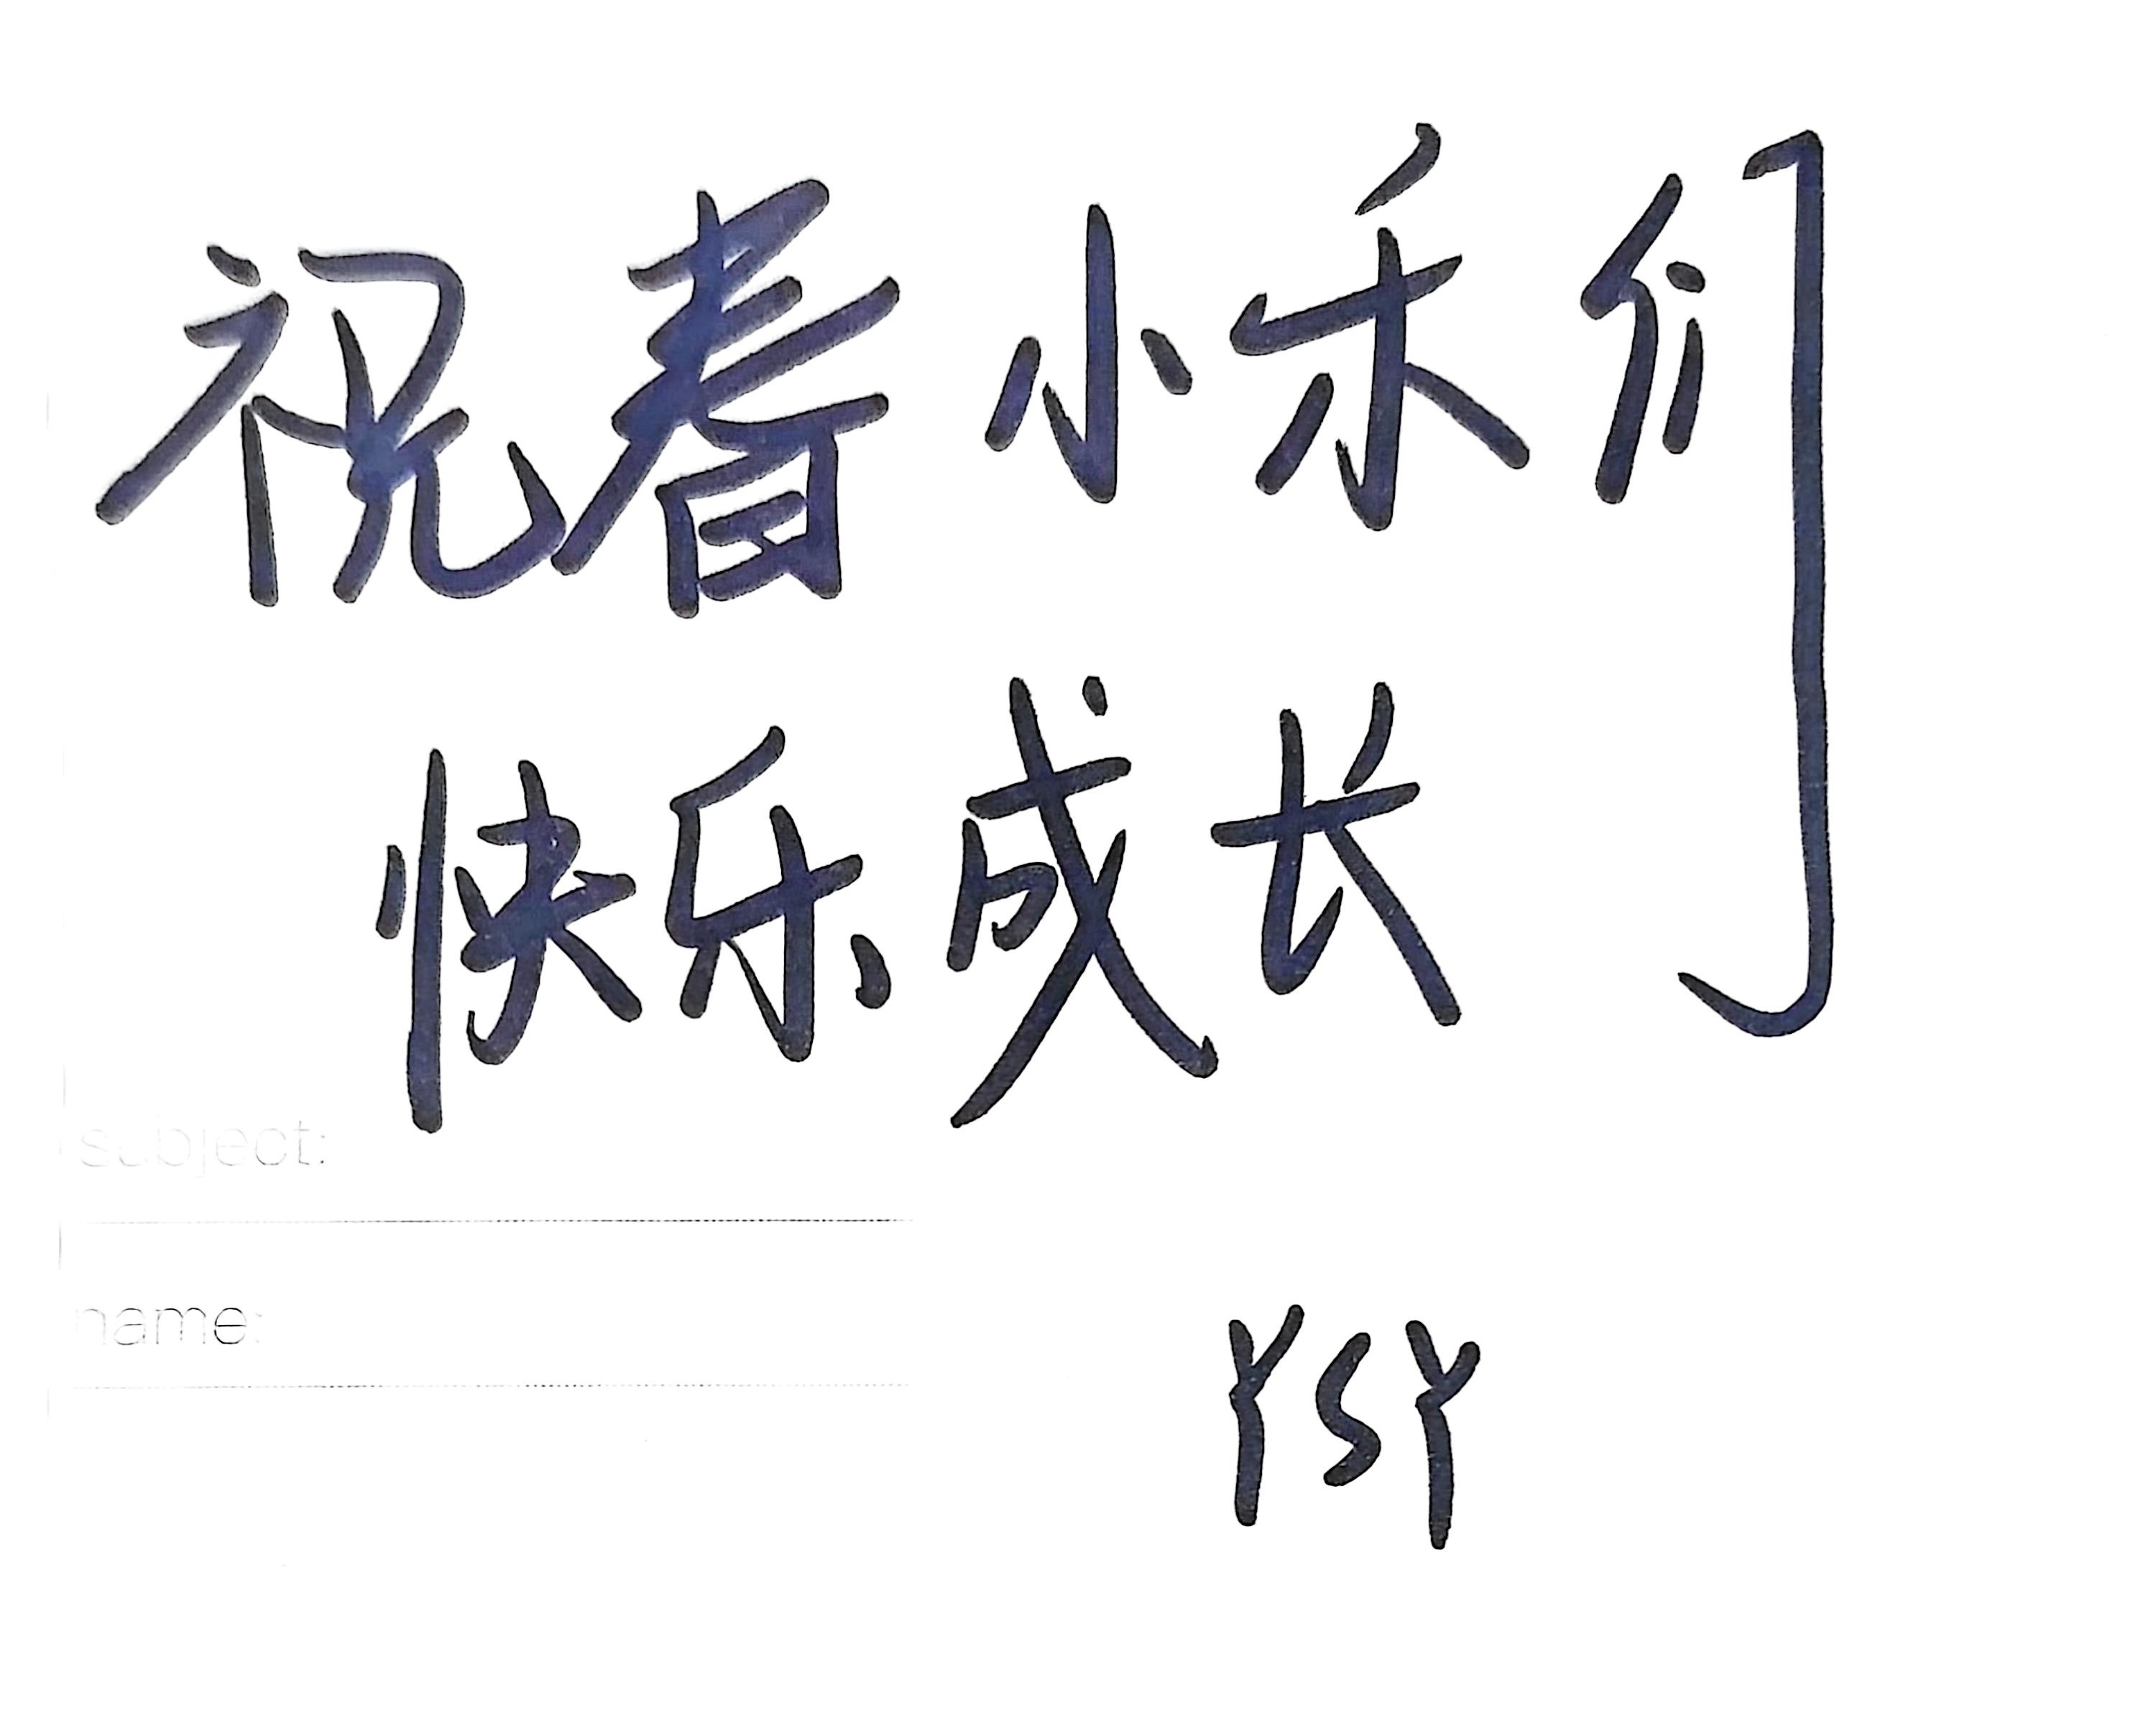 祝春小禾们
快乐成长
subject:
name:
YSY